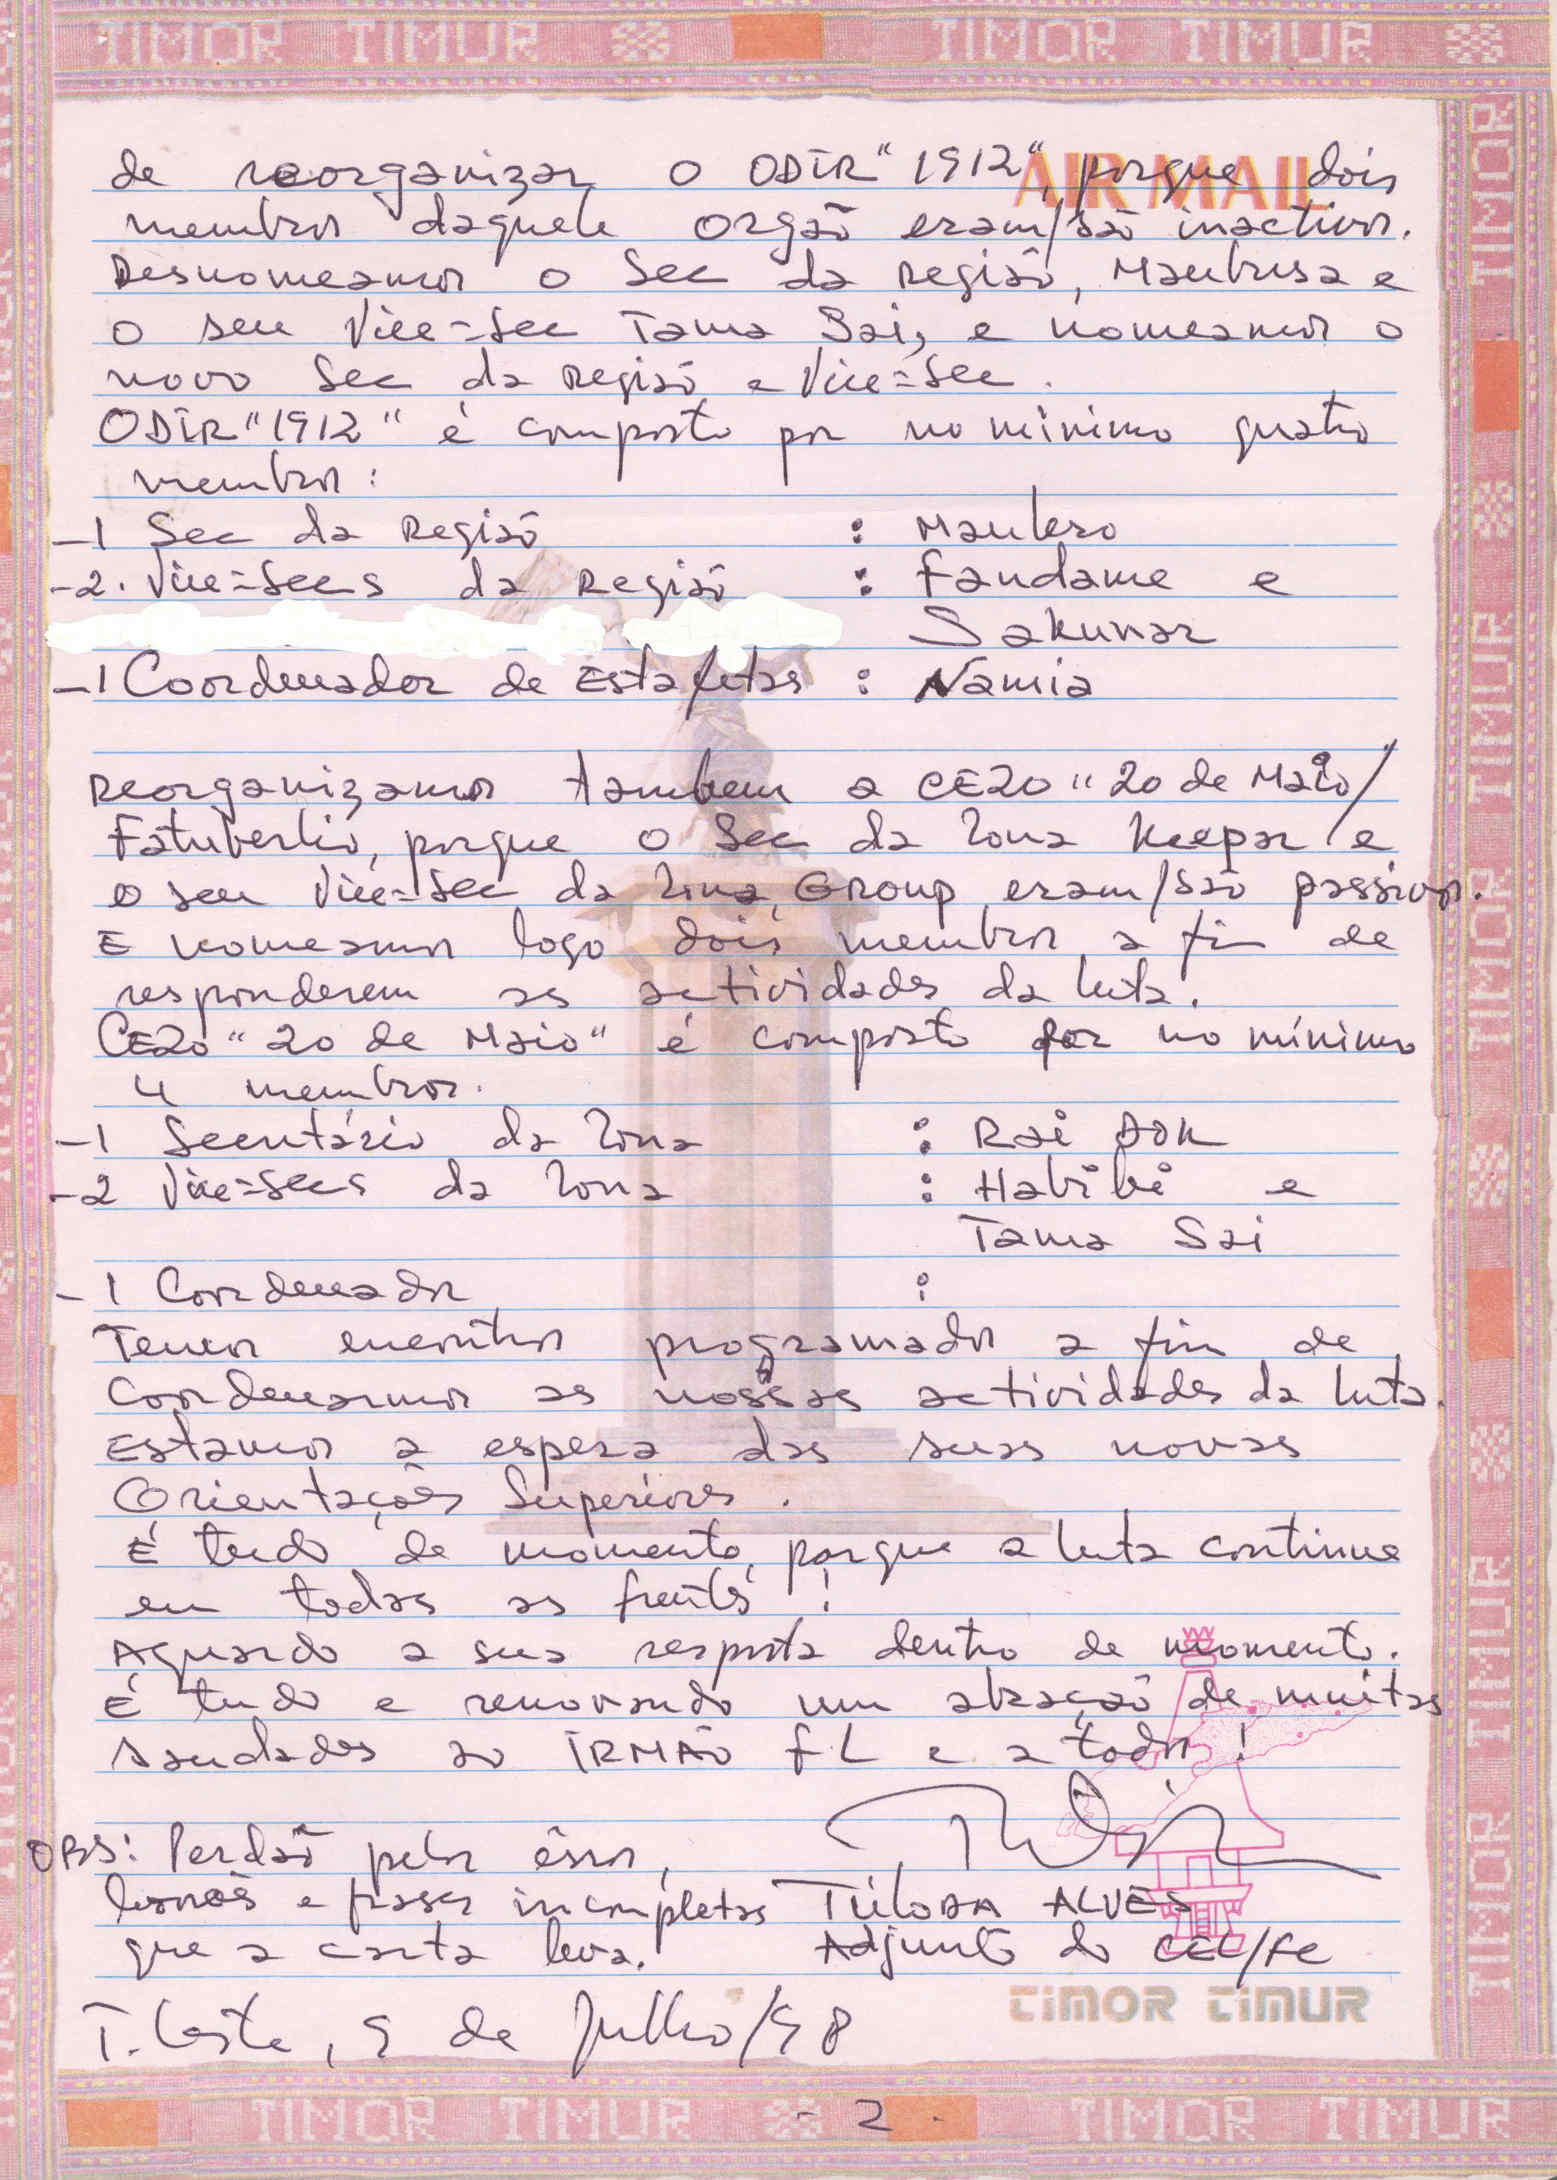 TIMOR TIMUR TIMOR TIMUR
AIR MAIL
de reorganizar o ODIR "1912", porque dois
membros daquele orgão eram/são inactivos.
Desnomeamos o Sec da Região, Maubusa e
o seu Vice=Sec Tama Sai, e nomeamos o
novo Sec da Região e Vice=Sec.
ODIR "1912" é composto por no minimo quatro
membros:
-1 Sec da Região : Maulero
-2. Vice=Secs da Região : Fandame e
Sakunar
-1 Coordenador de Estafetas : Namia
Reorganizamos tambem a CEZO "20 de Maio/
Fatuberlio, porque o Sec da Zona Keepar e
o seu Vice=Sec da Zona, Group eram/são passivos.
E nomeamos logo dois membros a fim de
responderem as actividades da luta.
CEZO "20 de Maio" é composto por no mínimo
4 membros.
-1 Secretário da Zona : Rai
-2 Vice=Secs da Zona : Habibi e
Tama Sai
-1 Coordenador :
Temos encontros programados a fim de
Coordenarmos as nossas actividades da luta.
Estamos a espera das suas novas
Orientações Superiores.
É tudo de momento, porque a luta continue
em todas as frentes!
Aguardo a sua resposta dentro de momento.
É tudo e renovando um abração de muitas
saudades ao IRMÃO FL e a todos!
OBS: Perdão pelos êrros,
borrões e frases incompletas
que a carta leva.
Tiloda ALVES
Adjunto do CEL/FE
TIMOR TIMUR
T. Leste, 9 de Julho/98
TIMOR TIMUR TIMOR TIMUR
- 2 -